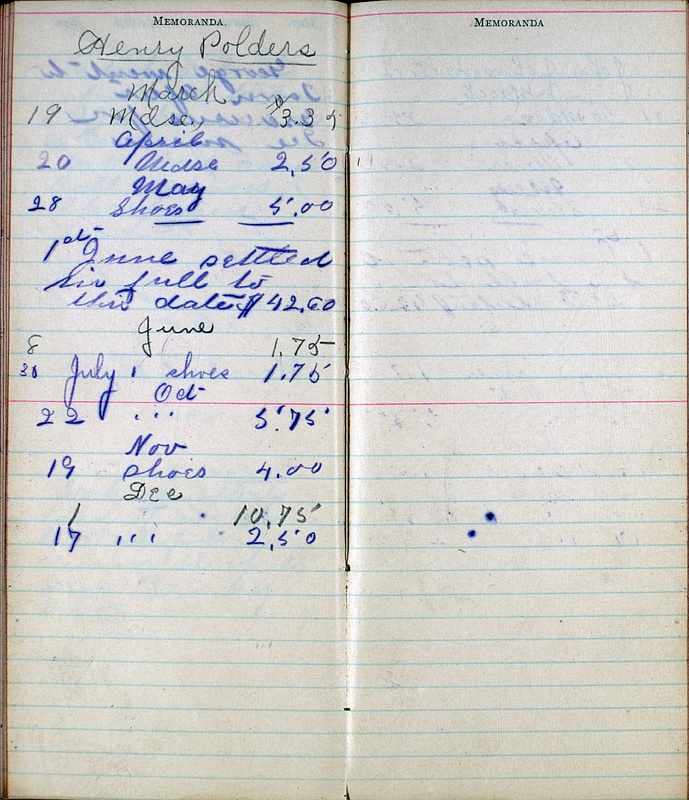 MEMORANDA.
Henry Polders
March
19 Mdse. 3.35
April
20 Mdse 2,50
May
28 Shoes 5.00
1st June settled
in full to
this date $42.60
June
8 1.75
30 July " shoes 1.75
Oct
22 " " " 5.75
Nov
19 shoes 4.00
Dec
1 " 10.75
17 " " " 2,50
MEMORANDA